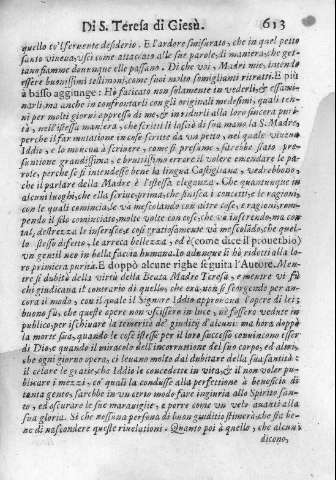 Di S. Teresa di Giesù. 613
quello ch'il feruente desiderio. E l'ardore suisurato, che in quel petto
santo viueua, uscì come attaccato alle sue parole; di maniera, che get-
tano fiamme dounque elle passano. Di che voi, Madri mie, intendo
essere buonissimi testimoni, come suoi molto somiglianti ritratti. E più
à basso aggiunge: Hò faticato non solamente in vederli, & essami-
narli, ma anche in confrontarli con gli originali medesimi, quali ten-
ni per molti giorni appresso di me, & in ridurli alla loro sincera puri-
tà, nell'istessa maniera, che scritti li lasciò di sua mano la S. Madre,
perche il far mutatione in cose scritte da vn petto, nel quale viueua
Iddio, e lo moueua à scriuere, come si presume, sarebbe stato pre-
suntione grandissima, e bruttissimo errore il volere emendare le pa-
role, perche se si intendesse bene la lingua Castigliana, vedrebbono,
che il parlare della Madre è l'istessa eleganza. Che quantunque in
alcuni luoghi, che ella scriue, prima, che finisca i concetti, e le ragioni,
con le quali comincia, le và mescolando con altre cose, e ragioni, rom-
pendo il filo cominciato, molte volte con cose, che và inferendo, ma con
tal, destrezza le inserisce, e così gratiosamente và mescolādo, che quel-
lo stesso difetto, le arreca bellezza, ed è (come dice il prouerbio)
vn gentil neo in bella faccia humana. Io adunque li hò ridotti alla lo-
ro primiera purità. E doppò alcune righe seguita l'Autore. Men-
tre si dubitò della virtù della Beata Madre Teresa, e mentre vi fù
chi giudicaua il contrario di quello, che era, non si scorgendo per an-
cora il modo, con il quale il Signore Iddio approuaua l'opere di lei;
buono fù, che queste opere non vscissero in luce, nè fossero vedute in
publico, per ischiuare la temerità de' giuditij d'alcuni: ma hora doppò
la morte sua, quando le cose istesse per il loro successo conuincono esser
di Dio, e quando il miracolo dell'incorrottione del suo corpo, ed altro,
che ogni giorno opera, ci leuano molto dal dubitare della sua santità:
il celare le gratie, che Iddio le concedette in vita, & il non voler pu-
blicare i mezzi, cò quali la condusse alla perfettione à beneficio di
tanta gente, sarebbe in vn certo modo fare ingiuria allo Spirito san-
to, ed oscurare le sue marauiglie, e porre come vn velo auanti alla
sua gloria. Sì che nessuna persona di buon giuditio stimerà, che stia be-
ne di nascondere queste riuelationi. Quanto poi à quello, che alcuni
dicono,